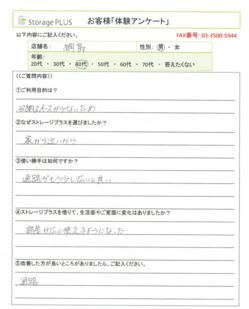 Storage PLUS お客様「体験アンケート」
以下内容にご記入ください。 FAX番号:03-3500-5944
店舗名: 性別: 男 ・ 女
年齢:
20代 ・ 30代 ・ 40代 ・ 50代 ・ 60代 ・ 70代 ・ 答えたくない
((ご質問内容))
①ご利用目的は?
収納スペースが少ないため
②なぜストレージプラスを選びましたか?
家から近いから
③使い勝手は如何ですか?
通路がもう少し広いと良い
④ストレージプラスを借りて、生活面やご家庭に変化はありましたか?
部屋が広く使えるようになった
⑤改善した方が良いところがありましたら、ご記入ください。
通路